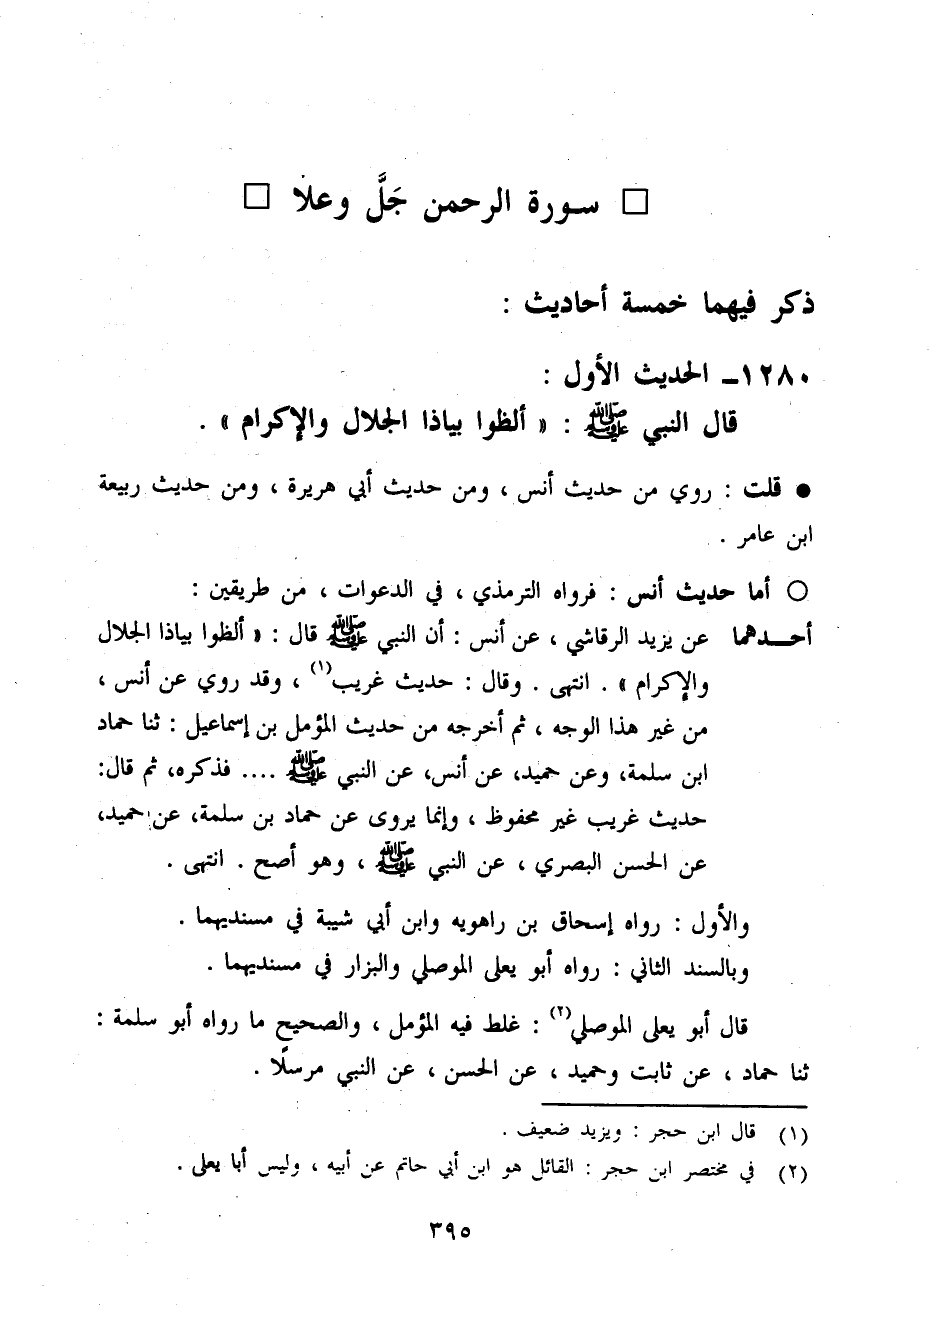 □ سورة الرحمن جَلَّ وعلا □
ذكر فيهما خمسة أحاديث :
١٢٨٠ـ الحديث الأول :
قال النبي ﷺ : « ألظوا بياذا الجلال والإكرام » .
● قلت : روي من حديث أنس ، ومن حديث أبي هريرة ، ومن حديث ربيعة
ابن عامر .
○ أما حديث أنس : فرواه الترمذي ، في الدعوات ، من طريقين :
أحـدهما عن يزيد الرقاشي ، عن أنس : أن النبي ﷺ قال : « ألظوا بياذا الجلال
والإكرام » . انتهى . وقال : حديث غريب(١) ، وقد روي عن أنس ،
من غير هذا الوجه ، ثم أخرجه من حديث المؤمل بن إسماعيل : ثنا حماد
ابن سلمة، وعن حميد، عن أنس، عن النبي ﷺ .... فذكره، ثم قال:
حديث غريب غير محفوظ ، وإنما يروى عن حماد بن سلمة، عن حميد،
عن الحسن البصري ، عن النبي ﷺ ، وهو أصح . انتهى .
والأول : رواه إسحاق بن راهويه وابن أبي شيبة في مسنديهما .
وبالسند الثاني : رواه أبو يعلى الموصلي والبزار في مسنديهما .
قال أبو يعلى الموصلي(٢) : غلط فيه المؤمل ، والصحيح ما رواه أبو سلمة :
ثنا حماد ، عن ثابت وحميد ، عن الحسن ، عن النبي مرسلًا .
(١) قال ابن حجر : ويزيد ضعيف .
(٢) في مختصر ابن حجر : القائل هو ابن أبي حاتم عن أبيه ، وليس أبا يعلى .
٣٩٥